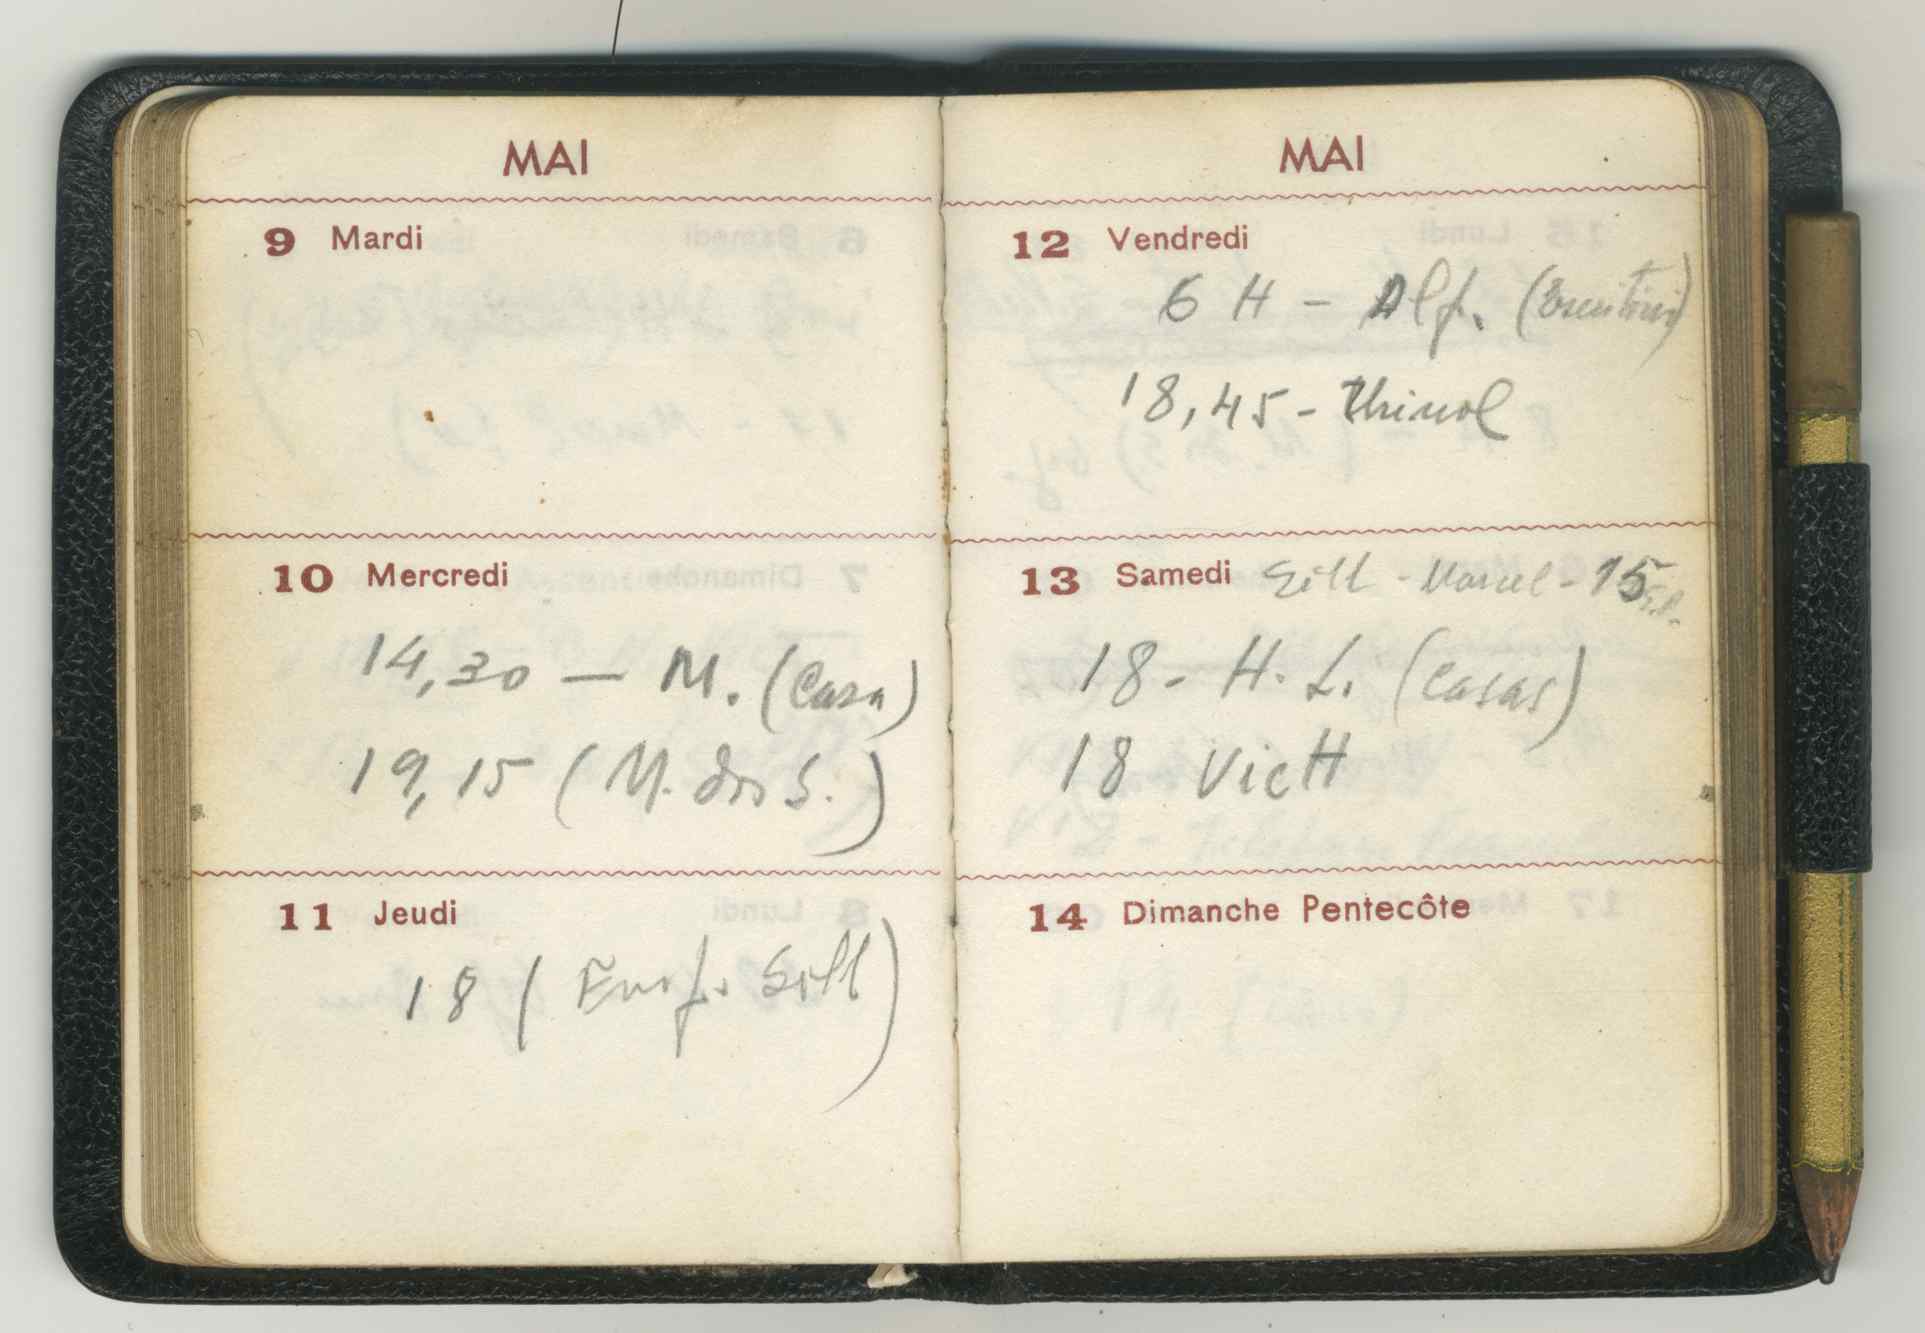 MAI
9 Mardi
10 Mercredi
14,30 — M. (Casa)
19,15 (M. dos S.)
11 Jeudi
18 (
MAI
12 Vendredi
6 H - Alf. (
18,45 -
13 Samedi - Marcel - 15
18 - H. L. (Casas)
18 Vict
14 Dimanche Pentecôte